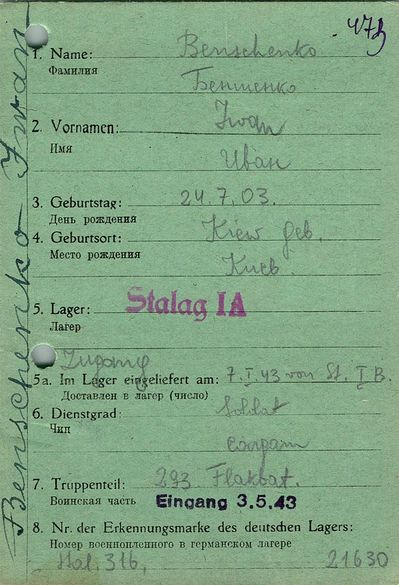 473
1. Name: Benschenko
Фамилия
Беншенко
2. Vornamen: Iwan
Имя
Иван
3. Geburtstag: 24.7.03.
День рождения
4. Geburtsort: Kiew Geb.
Место рождения
Киев
5. Lager: Stalag IA
Лагерь
Zugang
5a. Im Lager eingeliefert am: 7.I.43 von St. I B.
Доставлен в лагерь (число)
6. Dienstgrad: Soldat
Чин
солдат
7. Truppenteil: 293. Flakbat.
Воинская часть Eingang 3.5.43
8. Nr. der Erkennungsmarke des deutschen Lagers:
Номер военнопленного в германском лагере
Stal. 316, 21630
Benschenko Iwan